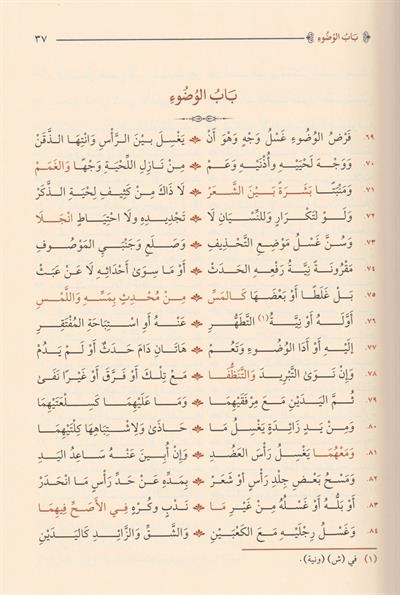 بَابُ الوُضُوءِ ٣٧
بَابُ الوُضُوءِ
٦٩. فَرْضُ الوُضُوءِ غَسْلُ وَجْهٍ وَهْوَ أَنْ يَغْسِلَ بَيْنَ الرَّأْسِ وَانْتِهَا الذَّقَنْ
٧٠. وَوَجْهَ لَحْيَيْهِ وَأُذْنَيْهِ وَعَمْ مِنْ نَازِلِ اللِّحْيَةِ وَجْهًا وَالغَمَمْ
٧١. وَمَنْبَتًا بَشَرَةً بَيْنَ الشَّعَرْ لَا ذَاكَ مِنْ كَثِيفِ لِحْيَةِ الذَّكَرْ
٧٢. وَلَوْ لِتَكْرَارٍ وَلِلنِّسْيَانِ لَا تَجْدِيدِهِ وَلَا احْتِيَاطٍ انْجَلَا
٧٣. وَسُنَّ غَسْلُ مَوْضِعِ التَّحْذِيفِ وَصَلَعٍ وَجَنْبَيِ المَوْصُوفِ
٧٤. مَقْرُونَةً نِيَّةُ رَفْعِهِ الحَدَثْ أَوْ مَا سِوَى أَحْدَاثِهِ لَا عَنْ عَبَثْ
٧٥. بَلْ غَلَطًا أَوْ بَعْضَهَا كَالمَسِّ مِنْ مُحْدِثٍ بِمَسِّهِ وَاللَّمْسِ
٧٦. أَوَّلَهُ أَوْ نِيَّةُ (١) التَّطَهُّرِ عَنْهُ أَوِ اسْتِبَاحَةِ المُفْتَقِرِ
٧٧. إِلَيْهِ أَوْ أَدَا الوُضُوءِ وَتَعُمْ هَاتَانِ دَامَ حَدَثٌ أَوْ لَمْ يَدُمْ
٧٨. وَإِنْ نَوَى التَّبْرِيدَ وَالتَّنَظُّفَا مَعْ تِلْكَ أَوْ فَرَّقَ أَوْ غَيْرًا نَفَى
٧٩. ثُمَّ اليَدَيْنِ مَعَ مِرْفَقَيْهِمَا وَمَا عَلَيْهِمَا كَسِلْعَتَيْهِمَا
٨٠. وَمِنْ يَدٍ زَائِدَةٍ يَغْسِلُ مَا حَاذَى وَلِاشْتِبَاهِهَا كِلْتَيْهِمَا
٨١. وَمَعْهُمَا يَغْسِلُ رَأْسَ العَضُدِ وَإِنْ أُبِينَ عَنْهُ سَاعِدُ اليَدِ
٨٢. وَمَسْحُ بَعْضِ جِلْدِ رَأْسٍ أَوْ شَعَرْ بِمَدِّهِ عَنْ حَدِّ رَأْسٍ مَا انْحَدَرْ
٨٣. أَوْ بَلُّهُ أَوْ غَسْلُهُ مِنْ غَيْرِ مَا نَدْبٍ وَكُرْهٍ فِي الأَصَحِّ فِيهِمَا
٨٤. وَغَسْلُ رِجْلَيْهِ مَعَ الكَعْبَيْنِ وَالشَّقِّ وَالزَّائِدِ كَاليَدَيْنِ
(١) في (ش) (ونية).